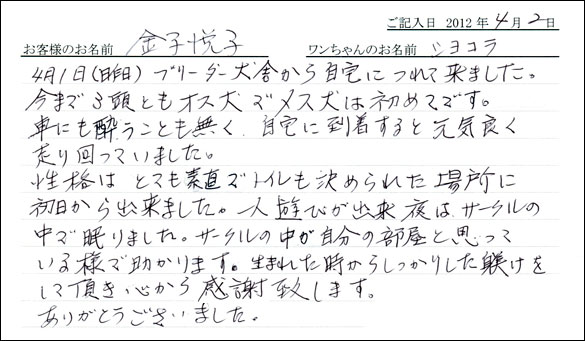 ご記入日 2012年4月2日
お客様のお名前 金子悦子 ワンちゃんのお名前 ショコラ
4月1日(日曜日)ブリーダー犬舎から自宅につれて来ました。
今まで3頭ともオス犬でメス犬は初めてです。
車にも酔うことも無く、自宅に到着すると元気良く
走り回っていました。
性格はとても素直でトイレも決められた場所に
初日から出来ました。一人遊びが出来夜は、サークルの
中で眠りました。サークルの中が自分の部屋と思って
いる様で助かります。生まれた時からしっかりした躾けを
して頂き、心から感謝致します。
ありがとうございました。